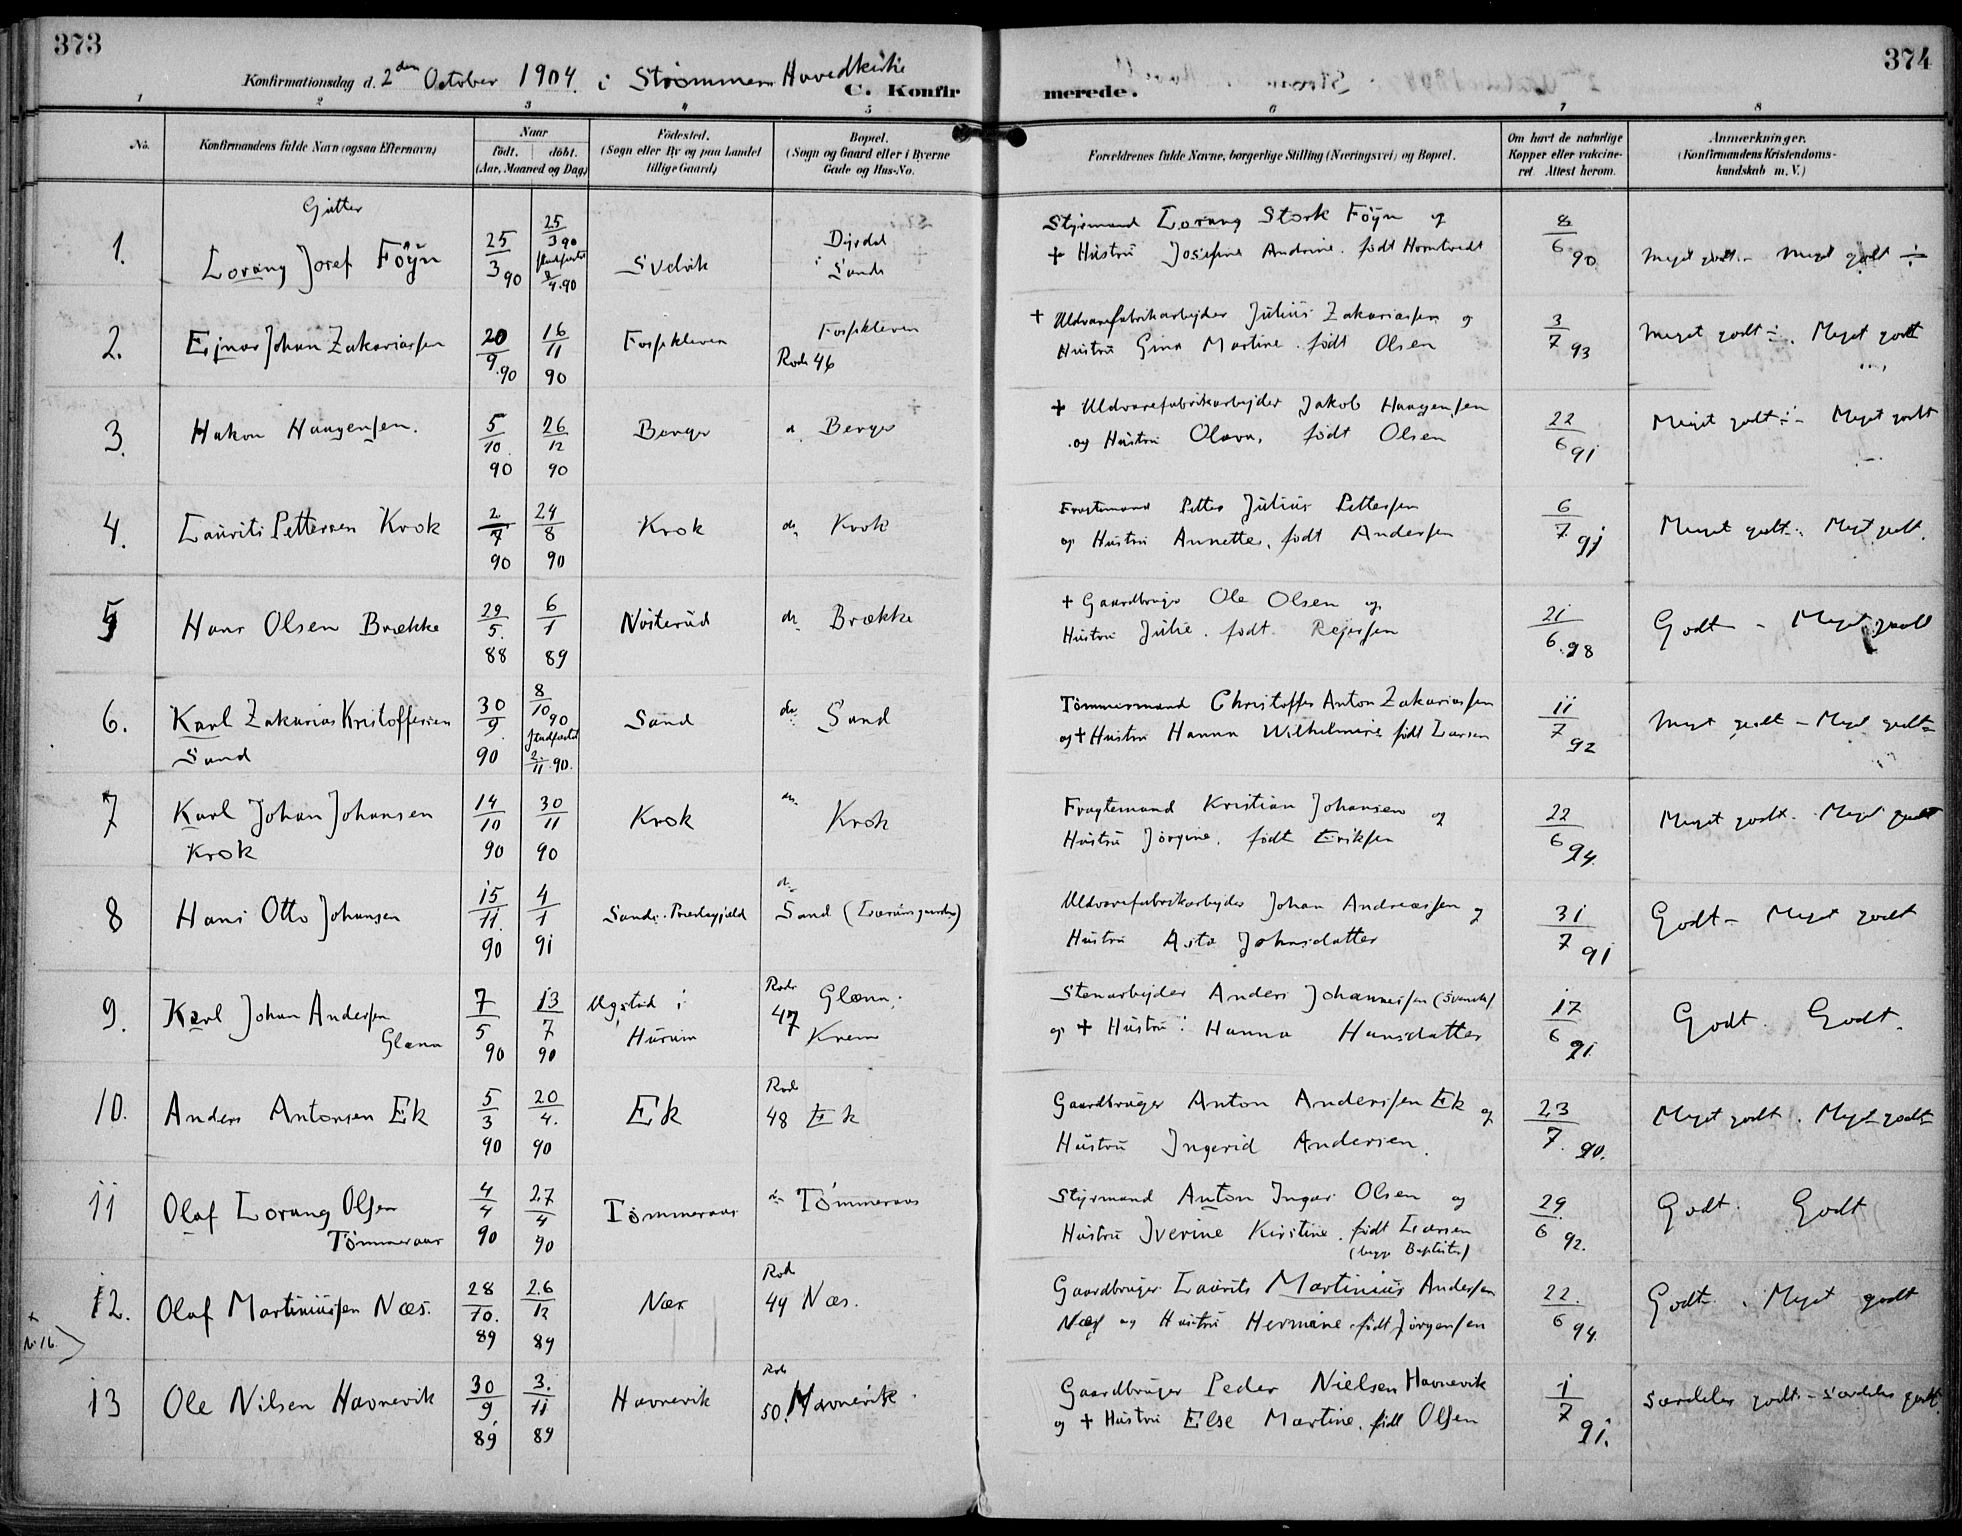 373
Konfirmationsdag d. 2den October 1904 i Strømmens Hovedkirke
C. Konfir
1 2 3 4 5
No.
Konfirmandens fulde Navn (ogsaa Efternavn)
Naar
født. døbt.
(Aar, Maaned og Dag)
Fødested.
(Sogn eller By og paa Landet
tillige Gaard)
Bopæl.
(Sogn og Gaard eller i Byerne
Gade og Hus-No.
Gutter
1. Lorang Josef Föyn 25/3 90 25/3 90 4.90 Svelvik Dyrdal i Sande
2. Ejnar Johan Zakariassen 20/9.90 16/11 90 Fossekleven Fossekleven Rode 46
3. Hakon Haagensen. 5/10 90 26/12 90 Berger Berger
4. Laurits Pettersen Krok 2/7 90 24/8 90 Krok do Krok
5 Hans Olsen Brække 29/5. 88 6/1 89 Nøsterud do Brække
6. Karl Zakarias Kristoffersen Sand 30/9 90 8/10 90 2/11.90. Sand do Sand
7 Karl Johan Johansen Krok 14/10 90 30/11 90 Krok do Krok
8 Hans Otto Johansen 15/11. 90 4/1 91 Sande Præstegjeld do Sand
9. Karl Johan Andersen Glænn 7/5 90 13/7 90 i Hurum Rode 47 Glænn.
10. Anders Antonsen Ek 5/3 90 20/4. 90 Ek Rode 48 Ek
11 Olaf Lorang Olsen Tømmeraas 4/4 90 27/4 90 Tømmeraas Tømmeraas
12. Olaf Martiniussen Næs. 28/10. 89 26/12 89 Næs Rode 49 Næs.
No 16
13 Ole Nilsen Havnevik 30/9 89 3./11 89 Havnevik Rode 50. Havnevik.
374
merede.
6 7 8
Forældrenes fulde Navne, borgerlige Stilling (Næringsvei) og Bopæl.
Om havt de naturlige
Kopper eller vakcine-
ret. Attest herom.
Anmærkninger.
(Konfirmandens Kristendoms-
kundskab m. V.)
Styrmand Lorang Stork Föyn og
+ Hustru Josefine Andrine. født Horntvedt 8/6 90 Meget godt - Meget godt ÷
+ Uldvarefabrikarbejder Julius Zakariassen og
Hustru Gina Martine. født Olsen 3/7 93 Meget godt ÷. Meget godt
+ Uldvarefabrikarbejder Jakob Haagensen
og Hustru Olava, født Olsen 22/6 91 Meget godt ÷ Meget godt
Fragtemand Petter Julius Pettersen
og Hustru Annette, født Andersen 6/7 91 Meget godt. Meget godt.
+ Gaardbruger Ole Olsen og
Hustru Julie. født. Rejersen 21/6.98 Godt - Meget godt
Tömmermand Christoffer Anton Zakariassen
og + Hustru Hanna Wilhelmine født Larsen 11/7 92 Meget godt - Meget godt
Fragtemand Kristian Johansen og
Hustru Jørgine. født Eriksen 22/6 94. Meget godt. Meget godt
Uldvarefabrikarbejder Johan Andreassen og
Hustru Asta Johnsdatter 31/7 91 Godt - Meget godt
Stenarbejder Anders Johannessen (svensk)
og + Hustru: Hanna Hansdatter 17/6 91. Godt. Godt.
Gaardbruger Anton Anderssen Ek og
Hustru Ingerid Andersen. 23/7. 90. Meget godt. Meget godt
Styrmand Anton Ingar Olsen og
Hustru Iverine Kirstine. født Larsen
(begge Baptister) 29/6 92. Godt. Godt
Gaardbruger Laurits Martinius Andersen
Næs og Hustru Hermine. født Jörgensen 22./6 94. Godt. Meget godt
Gaardbruger Peder Nielsen Havnevik
og + Hustru Else Martine. født Olsen 1/7 91. Særdeles godt. - særdeles godt.